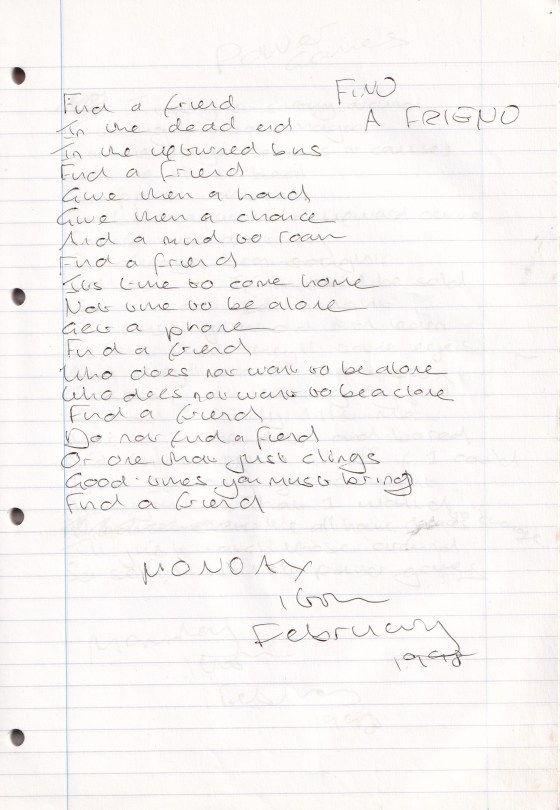 FIND
A FRIEND
Find a friend
In the dead end
In the upturned bins
Find a friend
Give them a hand
Give them a chance
And a mind to roam
Find a friend
Its time to come home
Not time to be alone
Get a phone
Find a friend
Who does not want to be alone
Who does not want to be a clone
Find a friend
Do not find a fiend
Or one that just clings
Good times you must bring
Find a friend
MONDAY
16th
February
1998